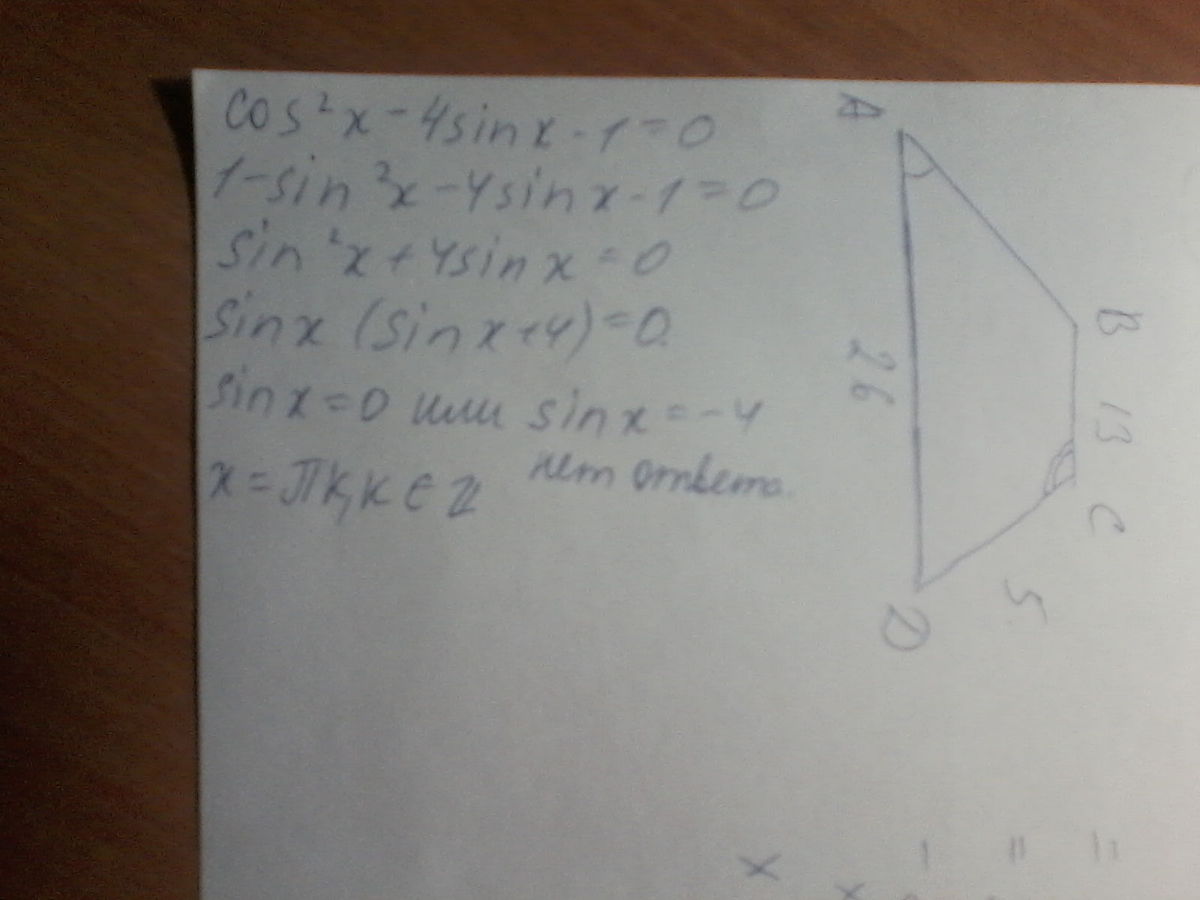 cos²x - 4sinx - 1 = 0
1 - sin²x - 4sinx - 1 = 0
sin²x + 4sinx = 0
sinx (sinx + 4) = 0
sinx = 0 или sinx = -4
x = πk, k ∈ Z нет ответа.
A
B
13
26
C
5
D